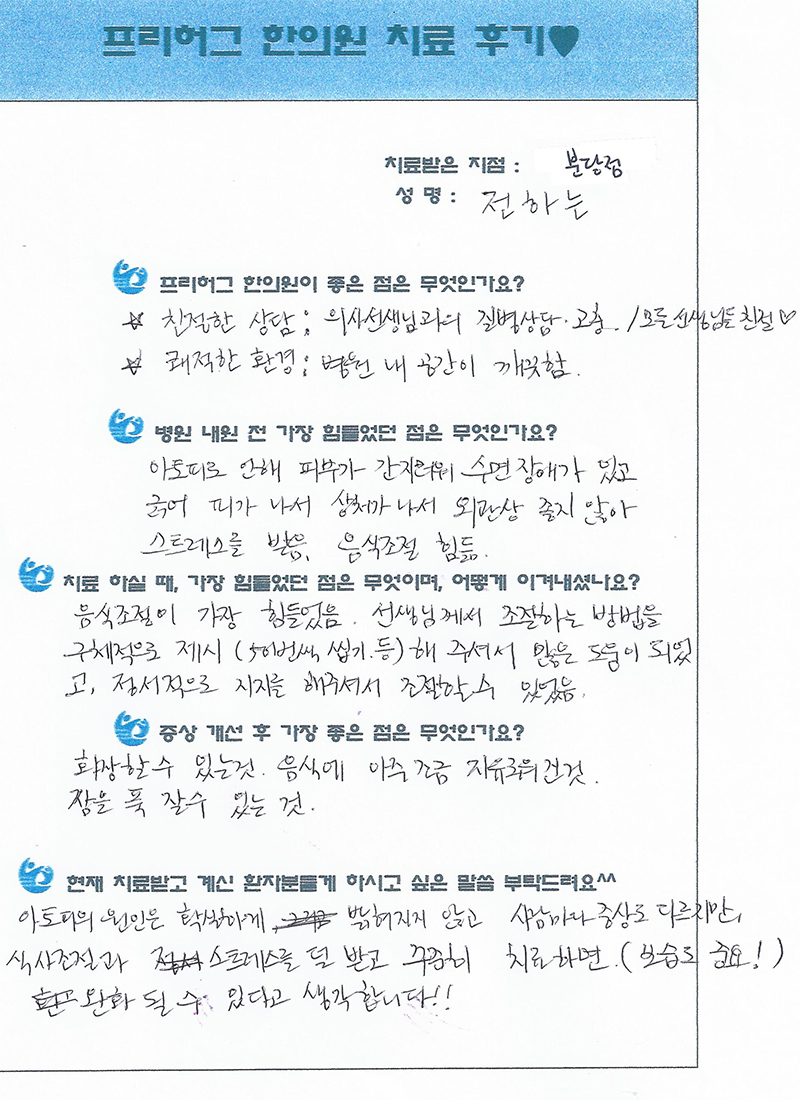 프리허그 한의원 치료 후기♥
치료받은 지점 : 분당점
성 명 : 전하는
프리허그 한의원이 좋은 점은 무엇인가요?
☆ 친절한 상담 ; 의사선생님과의 질병상담·고충. / 모든 선생님들 친절♡
☆ 쾌적한 환경 ; 병원 내 공간이 깨끗함.
병원 내원 전 가장 힘들었던 점은 무엇인가요?
아토피로 인해 피부가 간지러워 수면장애가 있고
긁어 피가 나서 상처가 나서 외관상 좋지 않아
스트레스를 받음, 음식조절 힘듦.
치료 하실 때, 가장 힘들었던 점은 무엇이며, 어떻게 이겨내셨나요?
음식조절이 가장 힘들었음. 선생님께서 조절하는 방법을
구체적으로 제시 (50번씩 씹기.등) 해 주셔서 많은 도움이 되었
고, 정서적으로 지지를 해주셔서 조절할 수 있었음.
증상 개선 후 가장 좋은 점은 무엇인가요?
화장할 수 있는것. 음식에 아주 조금 자유로워진것.
잠을 푹 잘수 있는 것.
현재 치료받고 계신 환자분들게 하시고 싶은 말씀 부탁드려요^^
아토피의 원인은 확실하게 밝혀지지 않고 사람마다 증상도 다르지만,
식사조절과 스트레스를 덜 받고 꾸준히 치료하면. (보습도 중요!)
완화 될 수 있다고 생각합니다!!